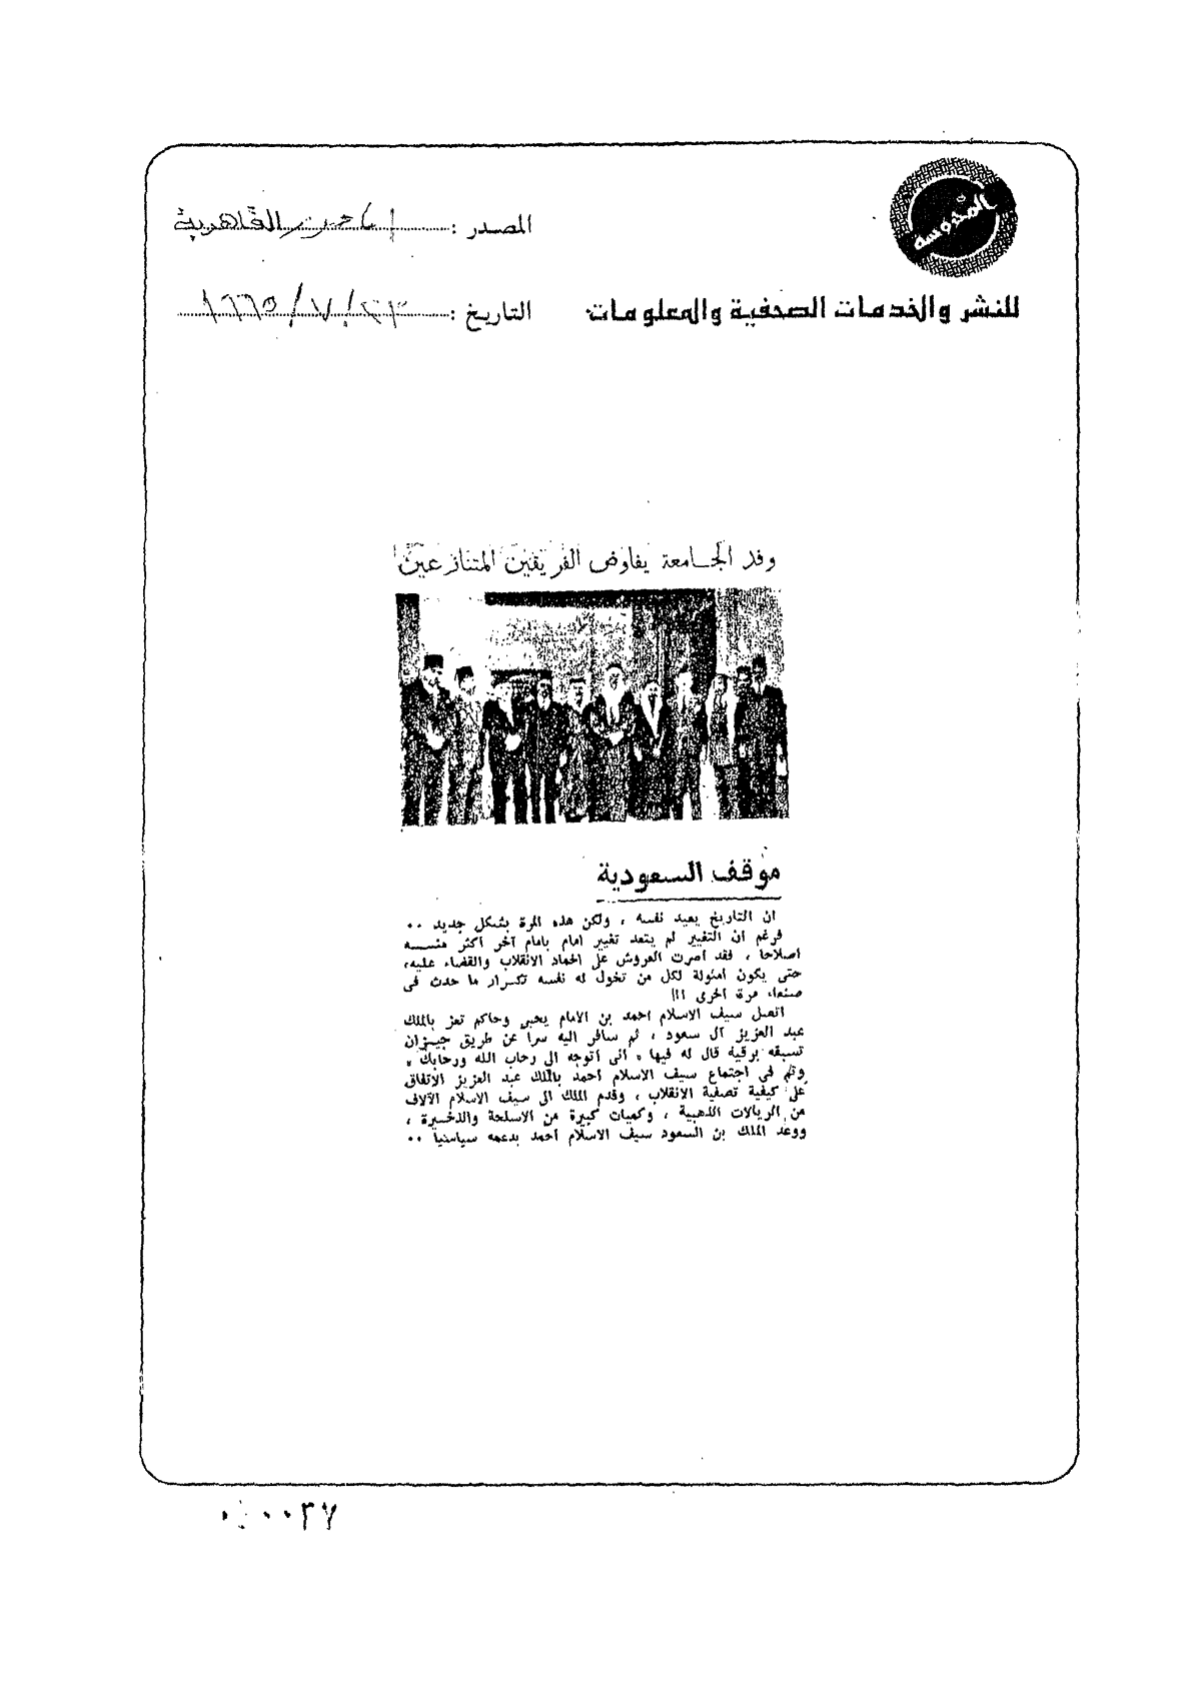 المحروسة
للنشر والخدمات الصحفية والمعلومات
المصدر : القاهرية
التاريخ : ٢٣ / ٧ / ١٩٦٥
وفد الجامعة يفاوض الفريقين المتنازعين
موقف السعودية
ان التاريخ يعيد نفسه ، ولكن هذه المرة بشكل جديد ٠٠
فرغم ان التغيير لم يتعد تغيير امام بامام آخر أكثر منه
اصلاحا ، فقد اصرت العروش على اخماد الانقلاب والقضاء عليه،
حتى يكون امثولة لكل من تخول له نفسه تكرار ما حدث فى
صنعاء مرة اخرى !!!
اتصل سيف الاسلام احمد بن الامام يحيى وحاكم تعز بالملك
عبد العزيز آل سعود ، ثم سافر اليه سرا عن طريق جيزان
تسبقه برقية قال له فيها « انى أتوجه الى رحاب الله ورحابك »
وتم فى اجتماع سيف الاسلام أحمد بالملك عبد العزيز الاتفاق
على كيفية تصفية الانقلاب ، وقدم الملك الى سيف الاسلام الآلاف
من الريالات الذهبية ، وكميات كبيرة من الاسلحة والذخيرة ،
ووعد الملك بن السعود سيف الاسلام أحمد بدعمه سياسيا ٠٠